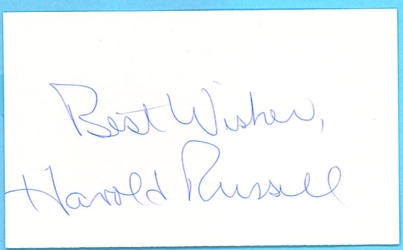 Best Wishes,
Harold Russell